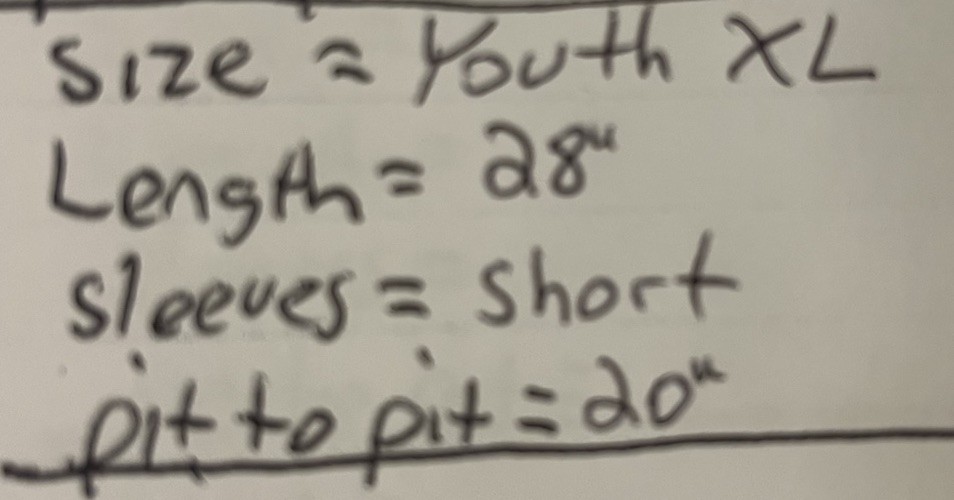 Size = Youth XL
Length = 28"
Sleeves = Short
pit to pit = 20"